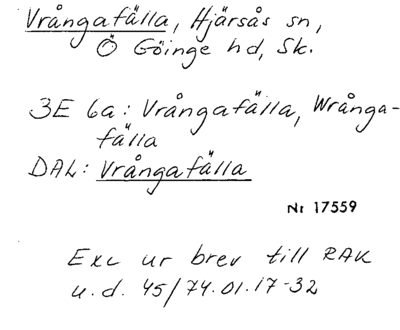 Vrångafälla, Hjärsås sn,
Ö Göinge hd, Sk.
3E 6a: Vrångafälla, Wrånga-
fälla
DAL: Vrångafälla
Nr 17559
Exc ur brev till RAK
u.d. 45/74.01.17-32